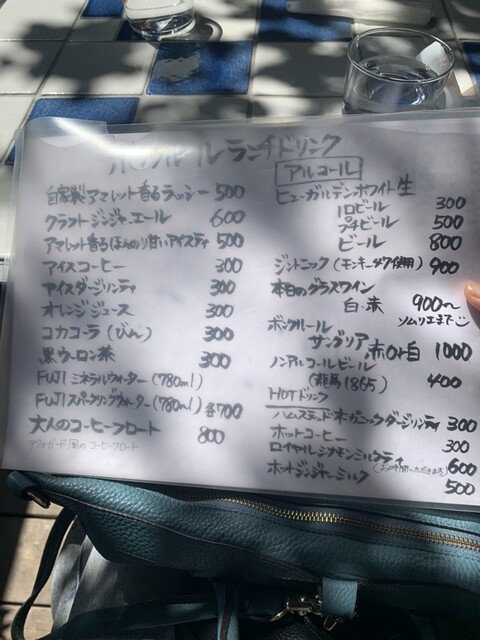 ボンクルール ランチドリンク
自家製アマレット香るラッシー 500
クラフトジンジャーエール 600
アマレット香るほんのり甘いアイスティ 500
アイスコーヒー 300
アイスダージリンティ 300
オレンジジュース 300
コカコーラ(びん) 300
黒ウーロン茶 300
FUJIミネラルウォーター(780ml)
FUJIスパークリングウォーター(780ml) 各700
大人のコーヒーフロート 800
アフォガード風のコーヒーフロート
アルコール
ヒューガルデンホワイト生
1口ビール 300
プチビール 500
ビール 800
ジントニック(モンキー47使用) 900
本日のグラスワイン
白・赤 900〜
ソムリエまで
ボンクルール
サングリア 赤or白 1000
ノンアルコールビール
(龍馬1865) 400
HOTドリンク
ハムステッドオーガニックダージリンティ 300
ホットコーヒー 300
ロイヤルシナモンミルクティ 600
(お時間いただきます)
ホットジンジャーミルク 500